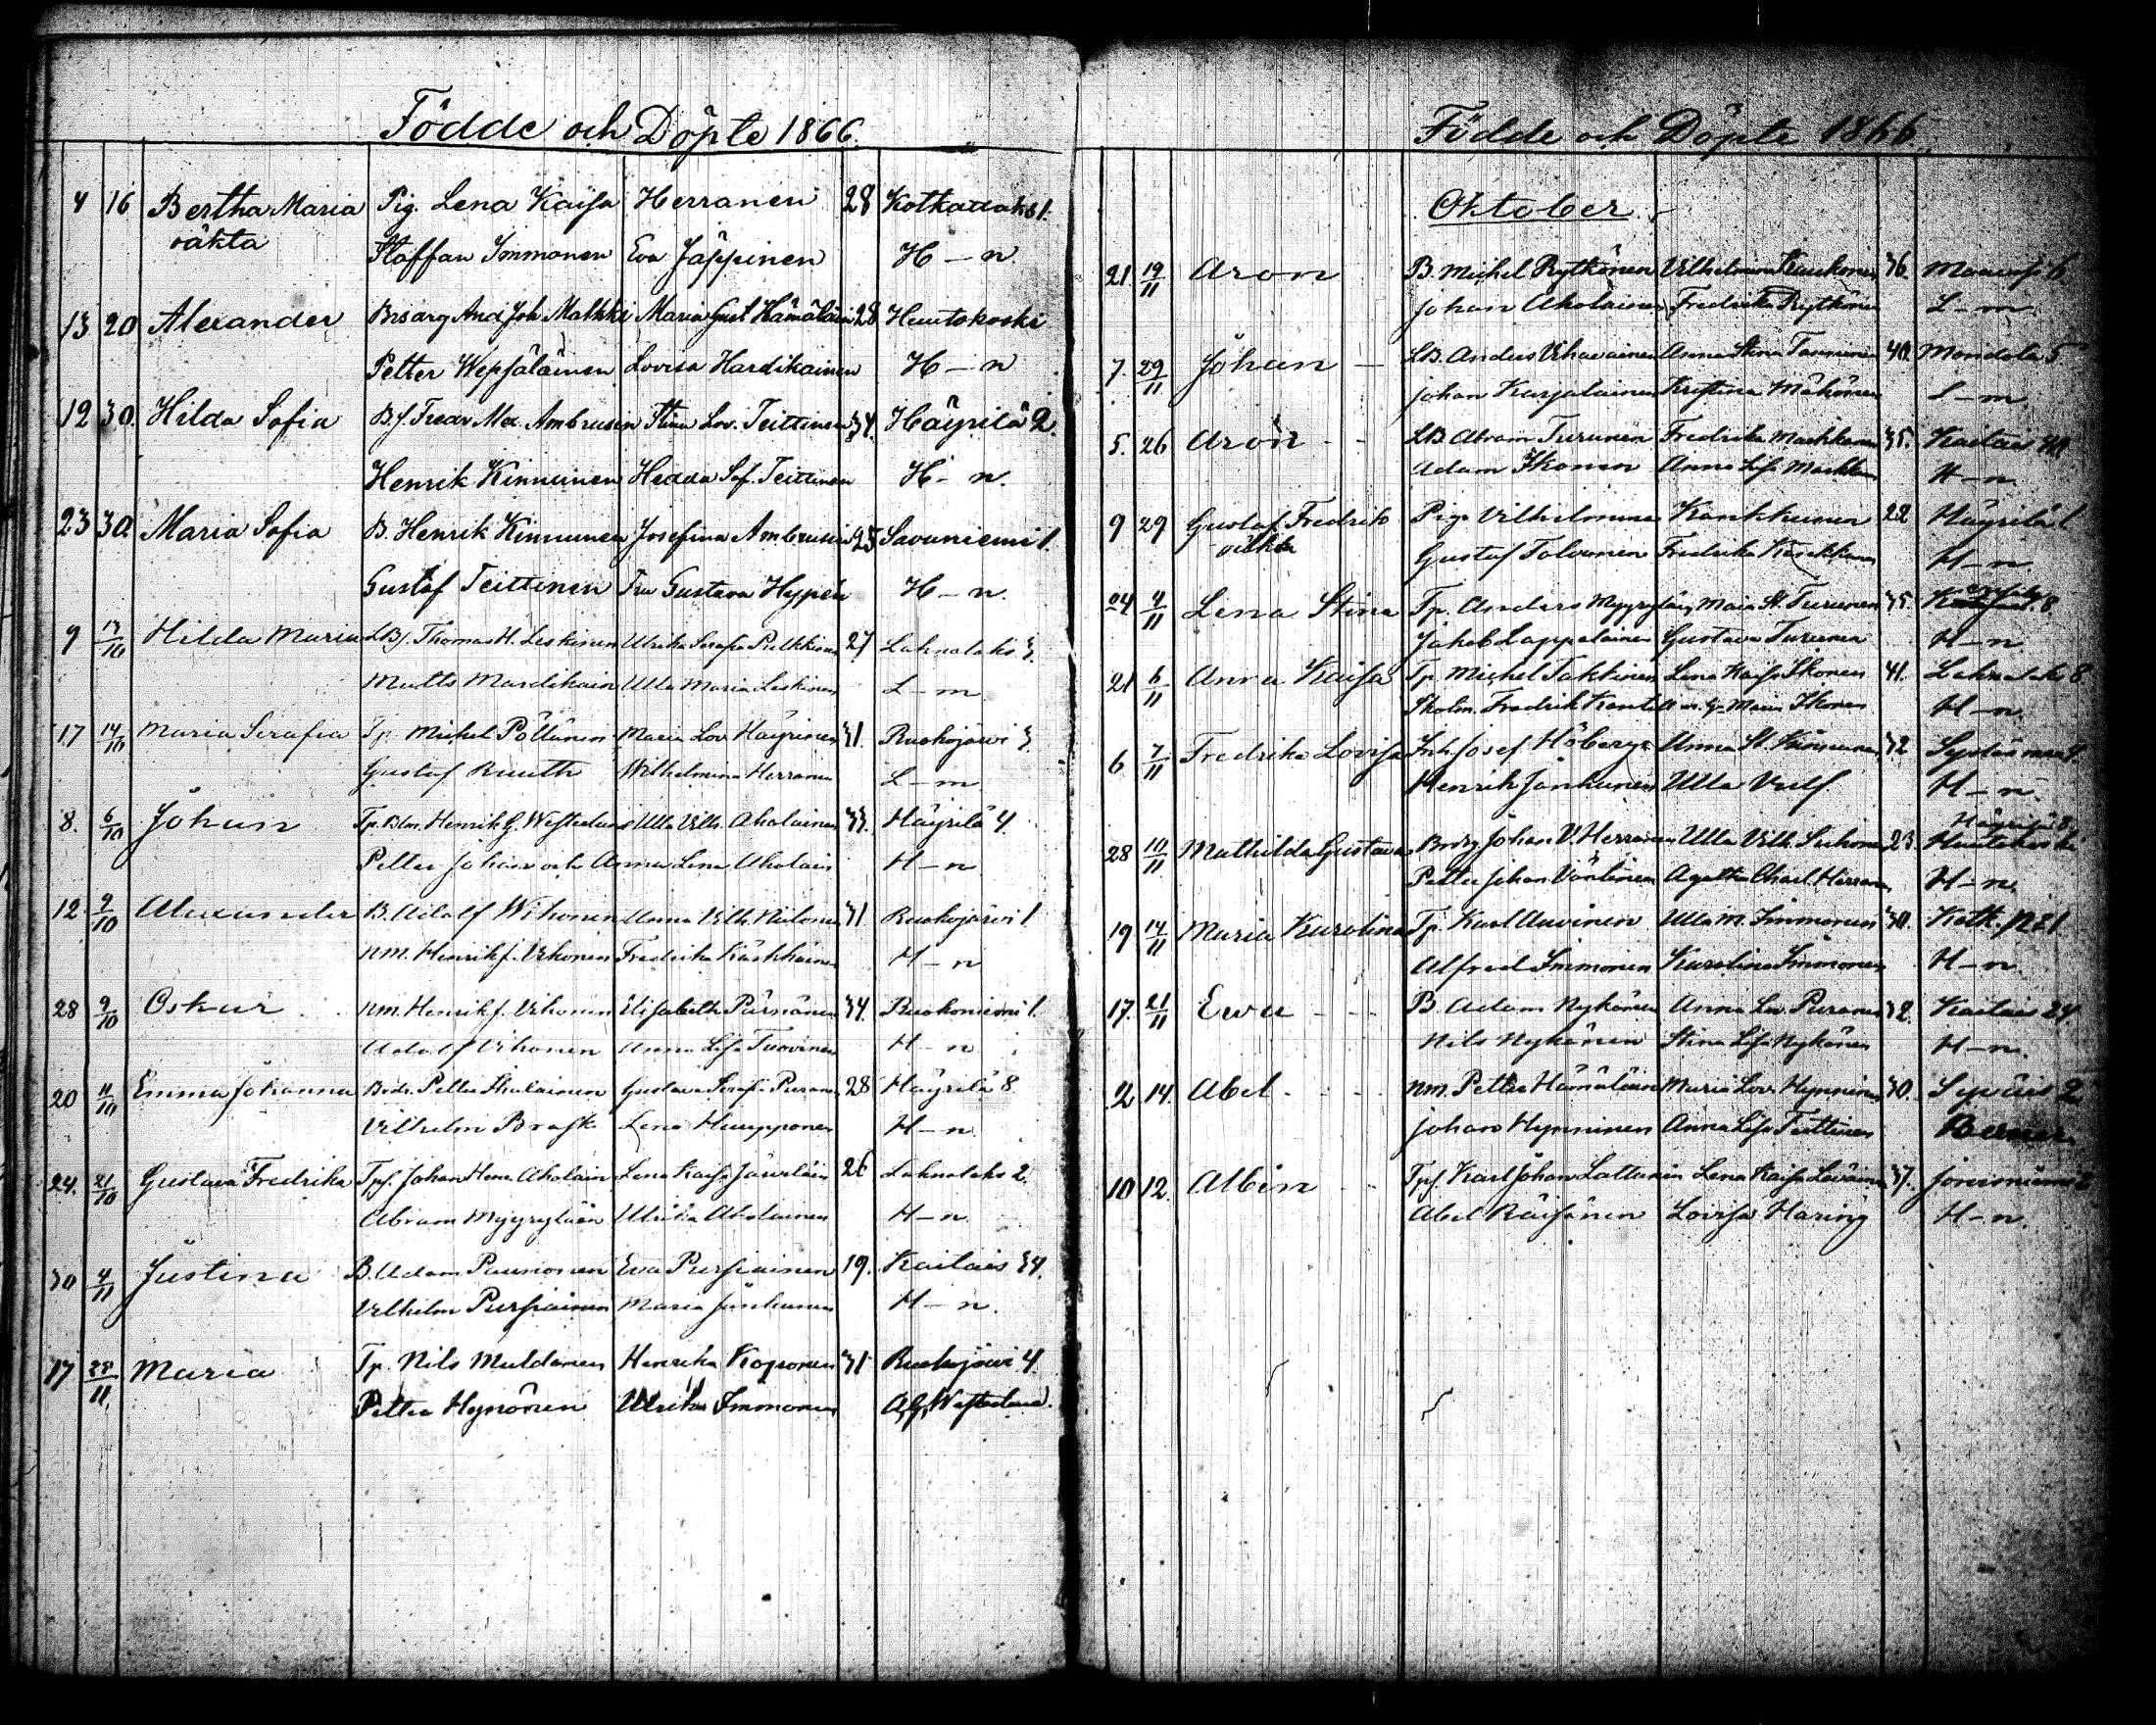 Födde och Döpte 1866.
4 16 Bertha Maria Pig. Lena Kaisa Herranen 28 Kotkatlaks 1.
oäkta Staffan Immonen Eva Jäppinen H–n
13 20 Alexander And Joh Malkki Maria Gust Hämäläin 28 Huutokoski
Petter Wepsäläinen Lovisa Hardikainen H–n
12 30. Hilda Sofia Ambrusin Stina Lov. Teittinen 34. Häyrilä 2.
Henrik Kinnunen Hedda Sof. Teittinen H–n.
23 30. Maria Sofia B. Henrik Kinnunen Josefina Ambrusin 25 Savuniemi 1.
Gustaf Teittinen Gustava Hypén H–n.
9 Hilda Maria Thomas H. Leskinen Ulrika Serafia Pulkkinen 27 Lahnalaks 3.
Matts Mardikain Ulla Maria Leskinen L–m
17 14/10 Maria Serafia Tp. Michel Pöllänen Maria Lov Häyrinen 31. Ruokojärvi 3
Gustaf Ruuth Wilhelmina Herranen L–m
8. 6/10 Johan Henrik G. Westerlund Ulla Vilh. Aholainen 33. Häyrilä 4
Petter Johan och Anna Lena Aholain H–n
12 9/10 Alexander B. Adolf Wihonen Anna Vilh. 31 Ruokojärvi 1
Nm. Henrik J. Vihonen Fredrika H–n
28 9/10 Oskar Nm. Henrik J. Vihonen Elisabeth Pärnänen 34. Ruokoniemi 1.
Adolf Vihonen Anna Lisa Tuovinen H–n
20 11/10 Emma Johanna Petter Gustava Seraf. Puranen 28 Häyrilä 8.
Vilhelm Brask Lena Huupponen H–n
24. 21/10 Gustava Fredrika Johan Henr. Aholain Lena Kaisa 26 Lahnalaks 2
Abram Myyryläin Ulrika Aholainen H–n
30 4/11 Justina B. Adam Paunonen Eva Pursiainen 19. Kaitais 34.
Vilhelm Pursiainen Maria Jänhunen H–n.
17 25/11 Maria Tp. Nils Muldanen Henrika Koponen 31 Ruokojärvi 4.
Petter Hynönen Ulrika Immonen Westerlund.
Födde och Döpte 1866.
Oktober
21 19/11 Aron B. Michel Rytkönen Vilhelmina 36. 6
Johan Aholainen Fredrika Rytkönen L–m.
7. 29/11 Johan – LB. Anders Vihavainen Anna Stina 40. Mondola 5
Johan Karjalainen Kristina Mähönen L–m
5. 26 Aron LB Abram Turunen Fredrika 35. Kaitais
Adam Ikonen Anna Lisa H–n
9 29 Gustaf Fredrik Pig. Vilhelmina Kankkunen 22 Häyrilä 1
oäkta Gustaf Tolvanen Fredrika H–n.
24 4/11 Lena Stina Tp. Anders Myyryläin Maia St. Turunen 35. 8
Jakob Lappalainen Gustava Turunen H–n
21 6/11 Anna Kaisa Tp. Michel Lena Kaisa Ikonen 41. Lahnalaks 8
Fredrik Maria Ikonen H–n.
6 7/11 Fredrika Lovisa Inh Josef Höberg Anna St. 32
Henrik Jänhunen Ulla Vulf H–n.
28 10/11 Mathilda Gustava Johan V. Herranen Ulla Vilh. 23. Häyrilä 8 Huutokoski
Petter Johan Agatha Charl. Herranen H–n.
19 14/11 Maria Karolina Tp. Karl Auvinen Ulla M. Immonen 30. Kotk. 1
Alfred Immonen Karolina Immonen H–n.
17. 21/11 Ewa B Adam Nykänen Anna Lov. Puranen 32. Kaitais 24.
Nils Nykänen Stina Lisa Nykänen H–n.
2 14. Abel Nm. Petter Hämäläin Maria Lov. Hynninen 30. 2
Johan Hynninen Anna Lisa Teittinen Berner
10 12. Albin Karl Johan Lena Kaisa 37. Joroisniemi
Abel Räisänen Lovisa Häring H–n.